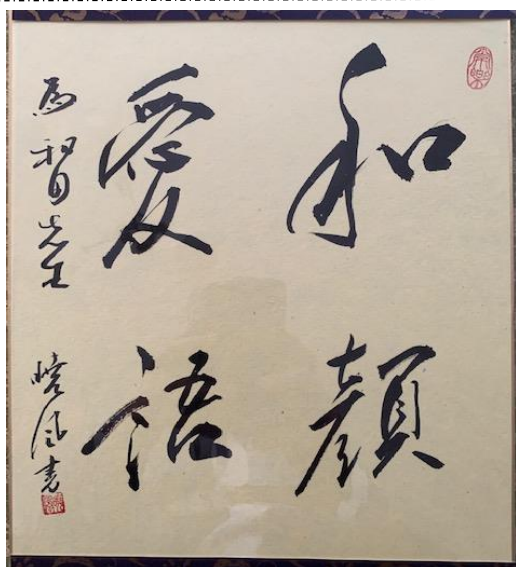 和顔
愛語
為智先生
曉風書